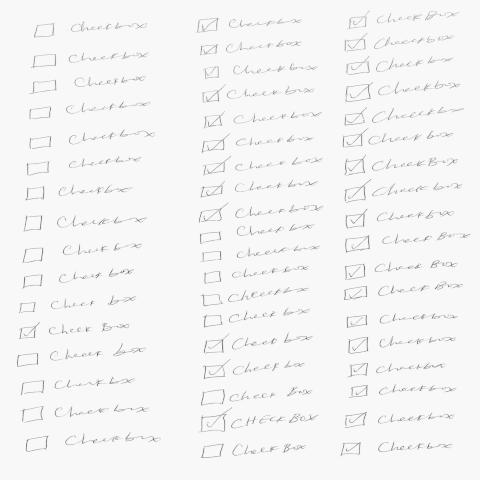 Checkbox
Checkbox
Checkbox
Checkbox
Checkbox
Checkbox
Checkbox
Checkbox
Checkbox
Check box
Check box
Check Box
Check box
Checkbox
Checkbox
Checkbox
Checkbox
Checkbox
Checkbox
Checkbox
Checkbox
Checkbox
Check box
Checkbox
Checkbox
Checkbox
Checkbox
Checkbox
Checkbox
Check box
Check box
Check box
Check Box
CHECK BOX
Check Box
Check Box
Checkbox
Checkbox
Checkbox
Checkbox
Checkbox
CheckBox
Checkbox
Checkbox
Check Box
Check Box
Check Box
Checkbox
Checkbox
Checkbox
Checkbox
Checkbox
Checkbox